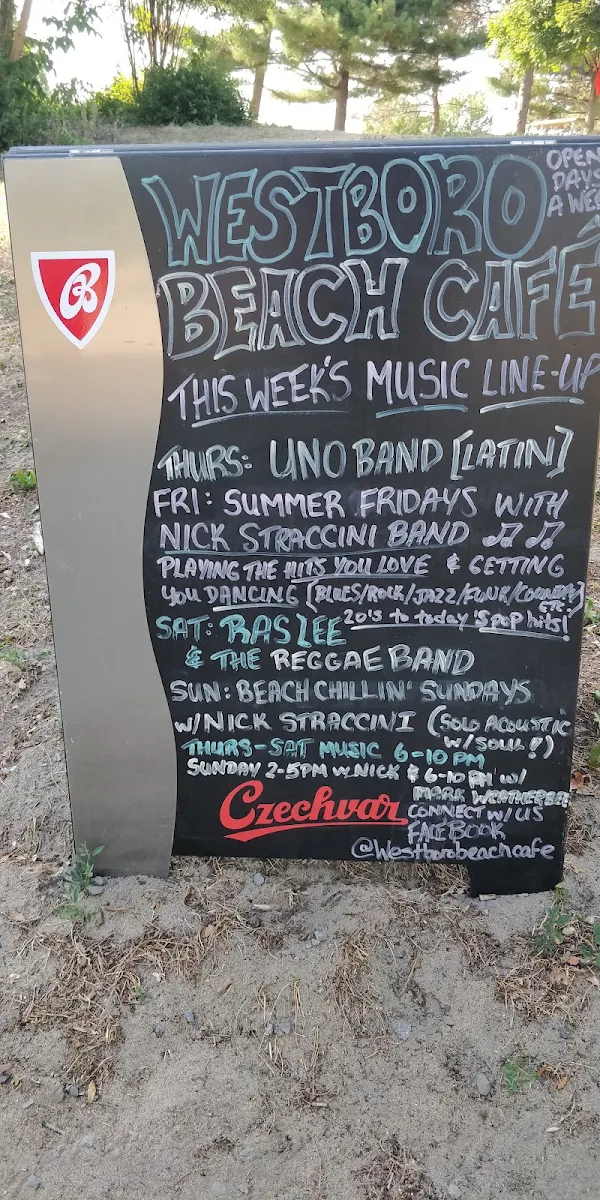 WESTBORO
OPEN
DAYS
A WEE
BEACH CAFÉ
B
THIS WEEK'S MUSIC LINE-UP
THURS: UNO BAND [LATIN]
FRI: SUMMER FRIDAYS WITH
NICK STRACCINI BAND ♫ ♫
PLAYING THE HITS YOU LOVE & GETTING
YOU DANCING [BLUES/ROCK/JAZZ/FUNK/COUNTRY]
ETC.
20's to today's pop hits!
SAT: RAS LEE
& THE REGGAE BAND
SUN: BEACH CHILLIN' SUNDAYS
W/NICK STRACCINI (SOLO ACOUSTIC
W/SOUL!)
THURS-SAT MUSIC 6-10 PM
SUNDAY 2-5PM W NICK & 6-10 PM W/
MARK
Czechvar
CONNECT W/ US
FACEBOOK
@Westborobeachcafe